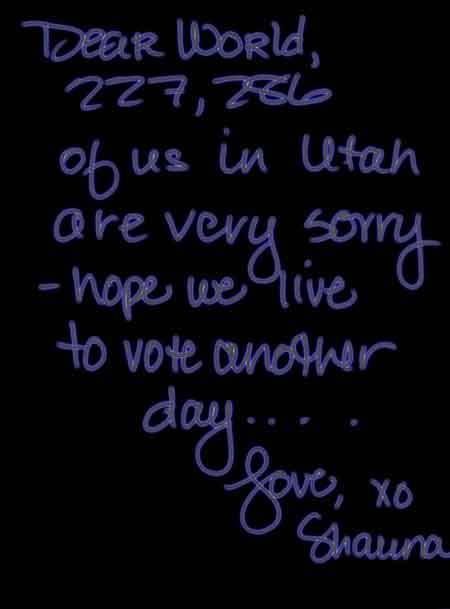 Dear World,
227,286
of us in Utah
are very sorry
- hope we live
to vote another
day....
Love, xo
Shauna